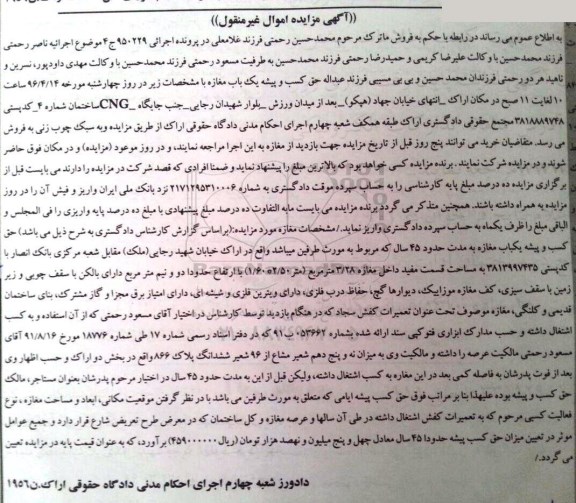 ((آگهی مزایده اموال غیرمنقول))
به اطلاع عموم می رساند در رابطه با حکم به فروش ماترک مرحوم محمدحسین رحمتی فرزند غلامعلی در پرونده اجرائی ۹۵۰۲۲۹ ج۴ موضوع اجرائیه ناصر رحمتی
فرزند محمدحسین با وکالت علیرضا کریمی و حمیدرضا رحمتی فرزند محمدحسین به طرفیت مسعود رحمتی فرزند محمدحسین با وکالت مهدی داودپور، نسرین و
ناهید هر دو رحمتی فرزندان محمد حسین و بی بی مسیبی فرزند عبداله حق کسب و پیشه یک باب مغازه با مشخصات زیر در روز چهارشنبه مورخه ۹۶/۴/۱۴ ساعت
۱۰ لغایت ۱۱ صبح در مکان اراک _انتهای خیابان جهاد (هپکو)_بعد از میدان ورزش _بلوار شهیدان رجایی_جنب جایگاه _CNG ساختمان شماره ۴_کدپستی
۳۸۱۸۸۸۹۷۴۸ مجتمع حقوقی دادگستری اراک طبقه همکف شعبه چهارم اجرای احکام مدنی دادگاه حقوقی اراک از طریق مزایده وبه سبک چوب زنی به فروش
می رسد. متقاضیان خرید می توانند پنج روز قبل از تاریخ مزایده جهت بازدید از مغازه به این اجرا مراجعه نمایند، و در روز موعود (مزایده) و در مکان فوق حاضر
شوند و در مزایده شرکت نمایند. برنده مزایده کسی خواهد بود که بالاترین مبلغ را پیشنهاد نماید و ضمنا افرادی که قصد شرکت در مزایده را دارند می بایست قبل از
برگزاری مزایده ده درصد مبلغ پایه کارشناسی را به حساب سپرده موقت دادگستری به شماره ۲۱۷۱۲۹۵۳۱۰۰۰۶ نزد بانک ملی ایران واریز و فیش آن را در روز
مزایده به همراه داشته باشند. همچنین متذکر می گردد برنده مزایده می بایست مابه التفاوت ده درصد مبلغ پیشنهادی با مبلغ ده درصد پایه واریزی را فی المجلس و
الباقی مبلغ را ظرف یکماه به حساب سپرده دادگستری واریز نماید./مشخصات مغازه مورد مزایده:(براساس گزارش کارشناس دادگستری به شرح ذیل می باشد) حق
کسب و پیشه یکباب مغازه به مدت حدود ۴۵ سال که مربوط به مورث طرفین میباشد واقع در اراک خیابان شهید رجایی(ملک) مقابل شعبه مرکزی بانک انصار با
کدپستی ۳۸۱۳۹۹۷۴۳۵ به مساحت قسمت مفید داخل مغازه ۳/۲۸ مترمربع (متر ۲/۵۰*۱/۶۰) با ارتفاع حدودا دو و نیم متر مربع دارای بالکن با سقف چوبی و زیر
زمین با سقف سیزی، کف مغازه موزاییک، دیوارها گچ، حفاظ، درب فلزی، دارای ویترین فلزی و شیشه ای، دارای امتیاز برق مجزا و گاز مشترک، بنای ساختمان
قدیمی و کلنگی، مغازه موصوف تحت عنوان تعمیرات کفش سجاد که در هنگام بازدید توسط کارشناس دراختیار آقای مسعود رحمتی که از آن استفاده و به کسب
اشتغال داشته و حسب مدارک ابرازی فتوکپی سند ارائه شده بشماره ۰۵۳۶۶۲ ب ۹۱ که در دفتر اسناد رسمی شماره ۱۷ طی شماره ۱۸۷۷۶ مورخ ۹۱/۸/۱۶ آقای
مسعود رحمتی مالکیت عرصه را داشته و مالکیت وی به میزان نه و پنج دهم شعیر مشاع از ۹۶ شعیر ششدانگ پلاک ۸۶۶ واقع در بخش دو اراک و حسب اظهار وی
بعد از فوت پدرشان به فاصله کمی بعد در این مغازه به کسب اشتغال داشته، ولیکن قبل از این به مدت حدود ۴۵ سال در اختیار مرحوم پدرشان بعنوان مستاجر، مالک
حق کسب و پیشه بوده علیهذا بنا بر مراتب فوق حق کسب پیشه ایامی که متعلق به مورث طرفین می باشد با در نظر گرفتن موقعیت مکانی، ابعاد و مساحت مغازه ، نوع
فعالیت کسبی مرحوم که به تعمیرات کفش اشتغال داشته در طی آن سالها و عرصه مغازه و کل ساختمان که در معرض طرح تعریض شارع قرار دارد و جمیع عوامل
موثر در تعیین میزان حق کسب پیشه حدودا ۴۵ سال معادل چهل و پنج میلیون و نهصد هزار تومان (ریال ۴۵۹۰۰۰۰۰۰) برآورد، که به عنوان قیمت پایه در مزایده تعیین
می گردد./
دادورز شعبه چهارم اجرای احکام مدنی دادگاه حقوقی اراک.ن۱۹۵۶